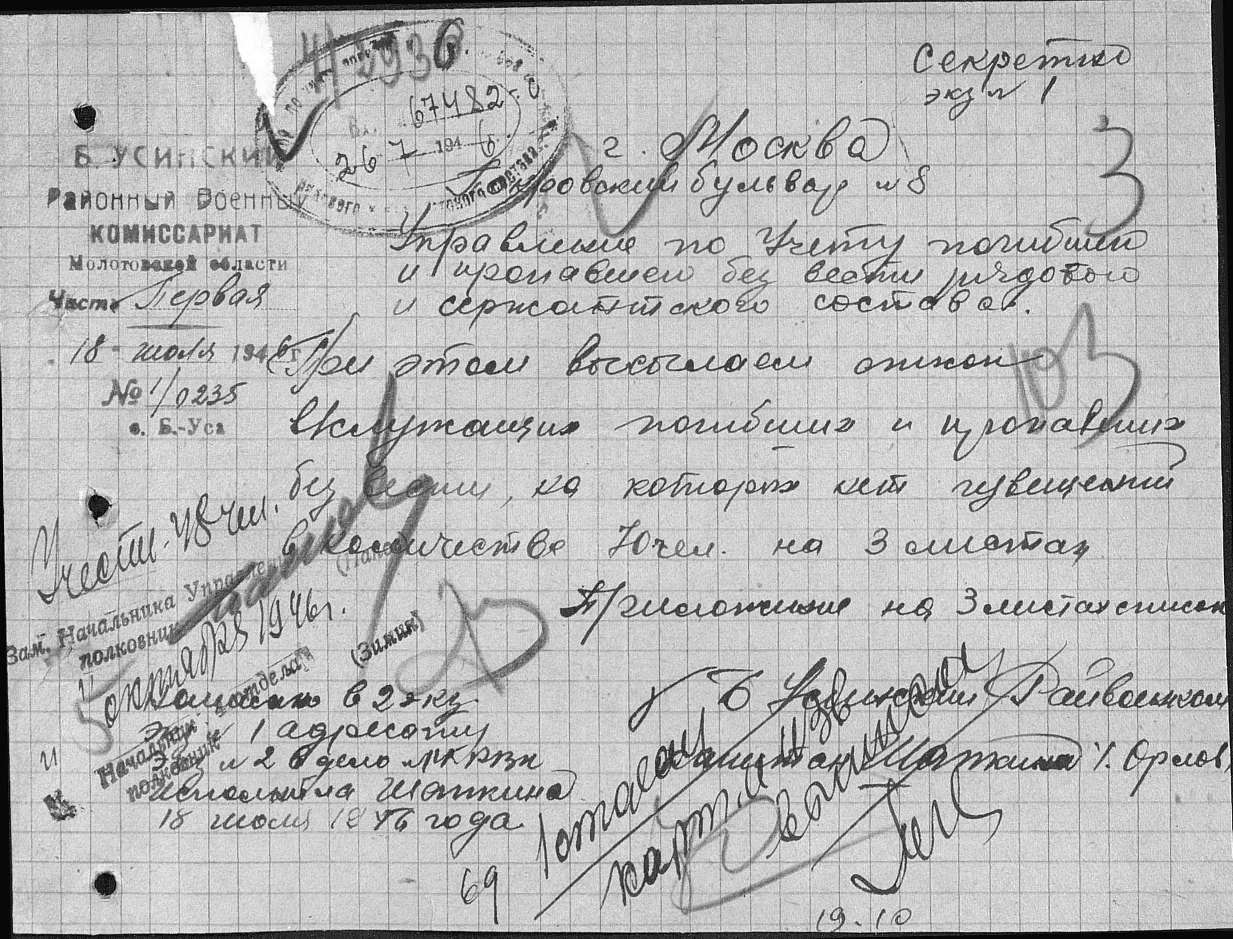 Секретно
экз № 1
4/2930
Вх. 67482
26 7 1946
г. Москва
Покровский бульвар № 8
Б. УСИНСКИЙ
Районный Военный
КОМИССАРИАТ
Молотовской области
Часть Первая
18 июля 1946 г.
№ 1/0235
с. Б.-Уса
Управление по Учету погибшего
и пропавшего без вести рядового
и сержантского состава.
3
При этом высылаем
103
погибших и пропавших
без вести, на которых нет извещений
в количестве 70 чел. на 3 листах
Приложение на 3 листах список
Учесть 48 чел.
Зам. Начальника
полковник
октября 1946 г.
(Зимин)
Начальник отдела
полковник
в 2 экз
1 адресату
№ 2 в дело
Исполнила Шаткина
18 июля 1946 года
Б Усинский Райвоенком
капитан Шаткина /. Орлов/
1 отдел
карт. и извещ
69
19.10